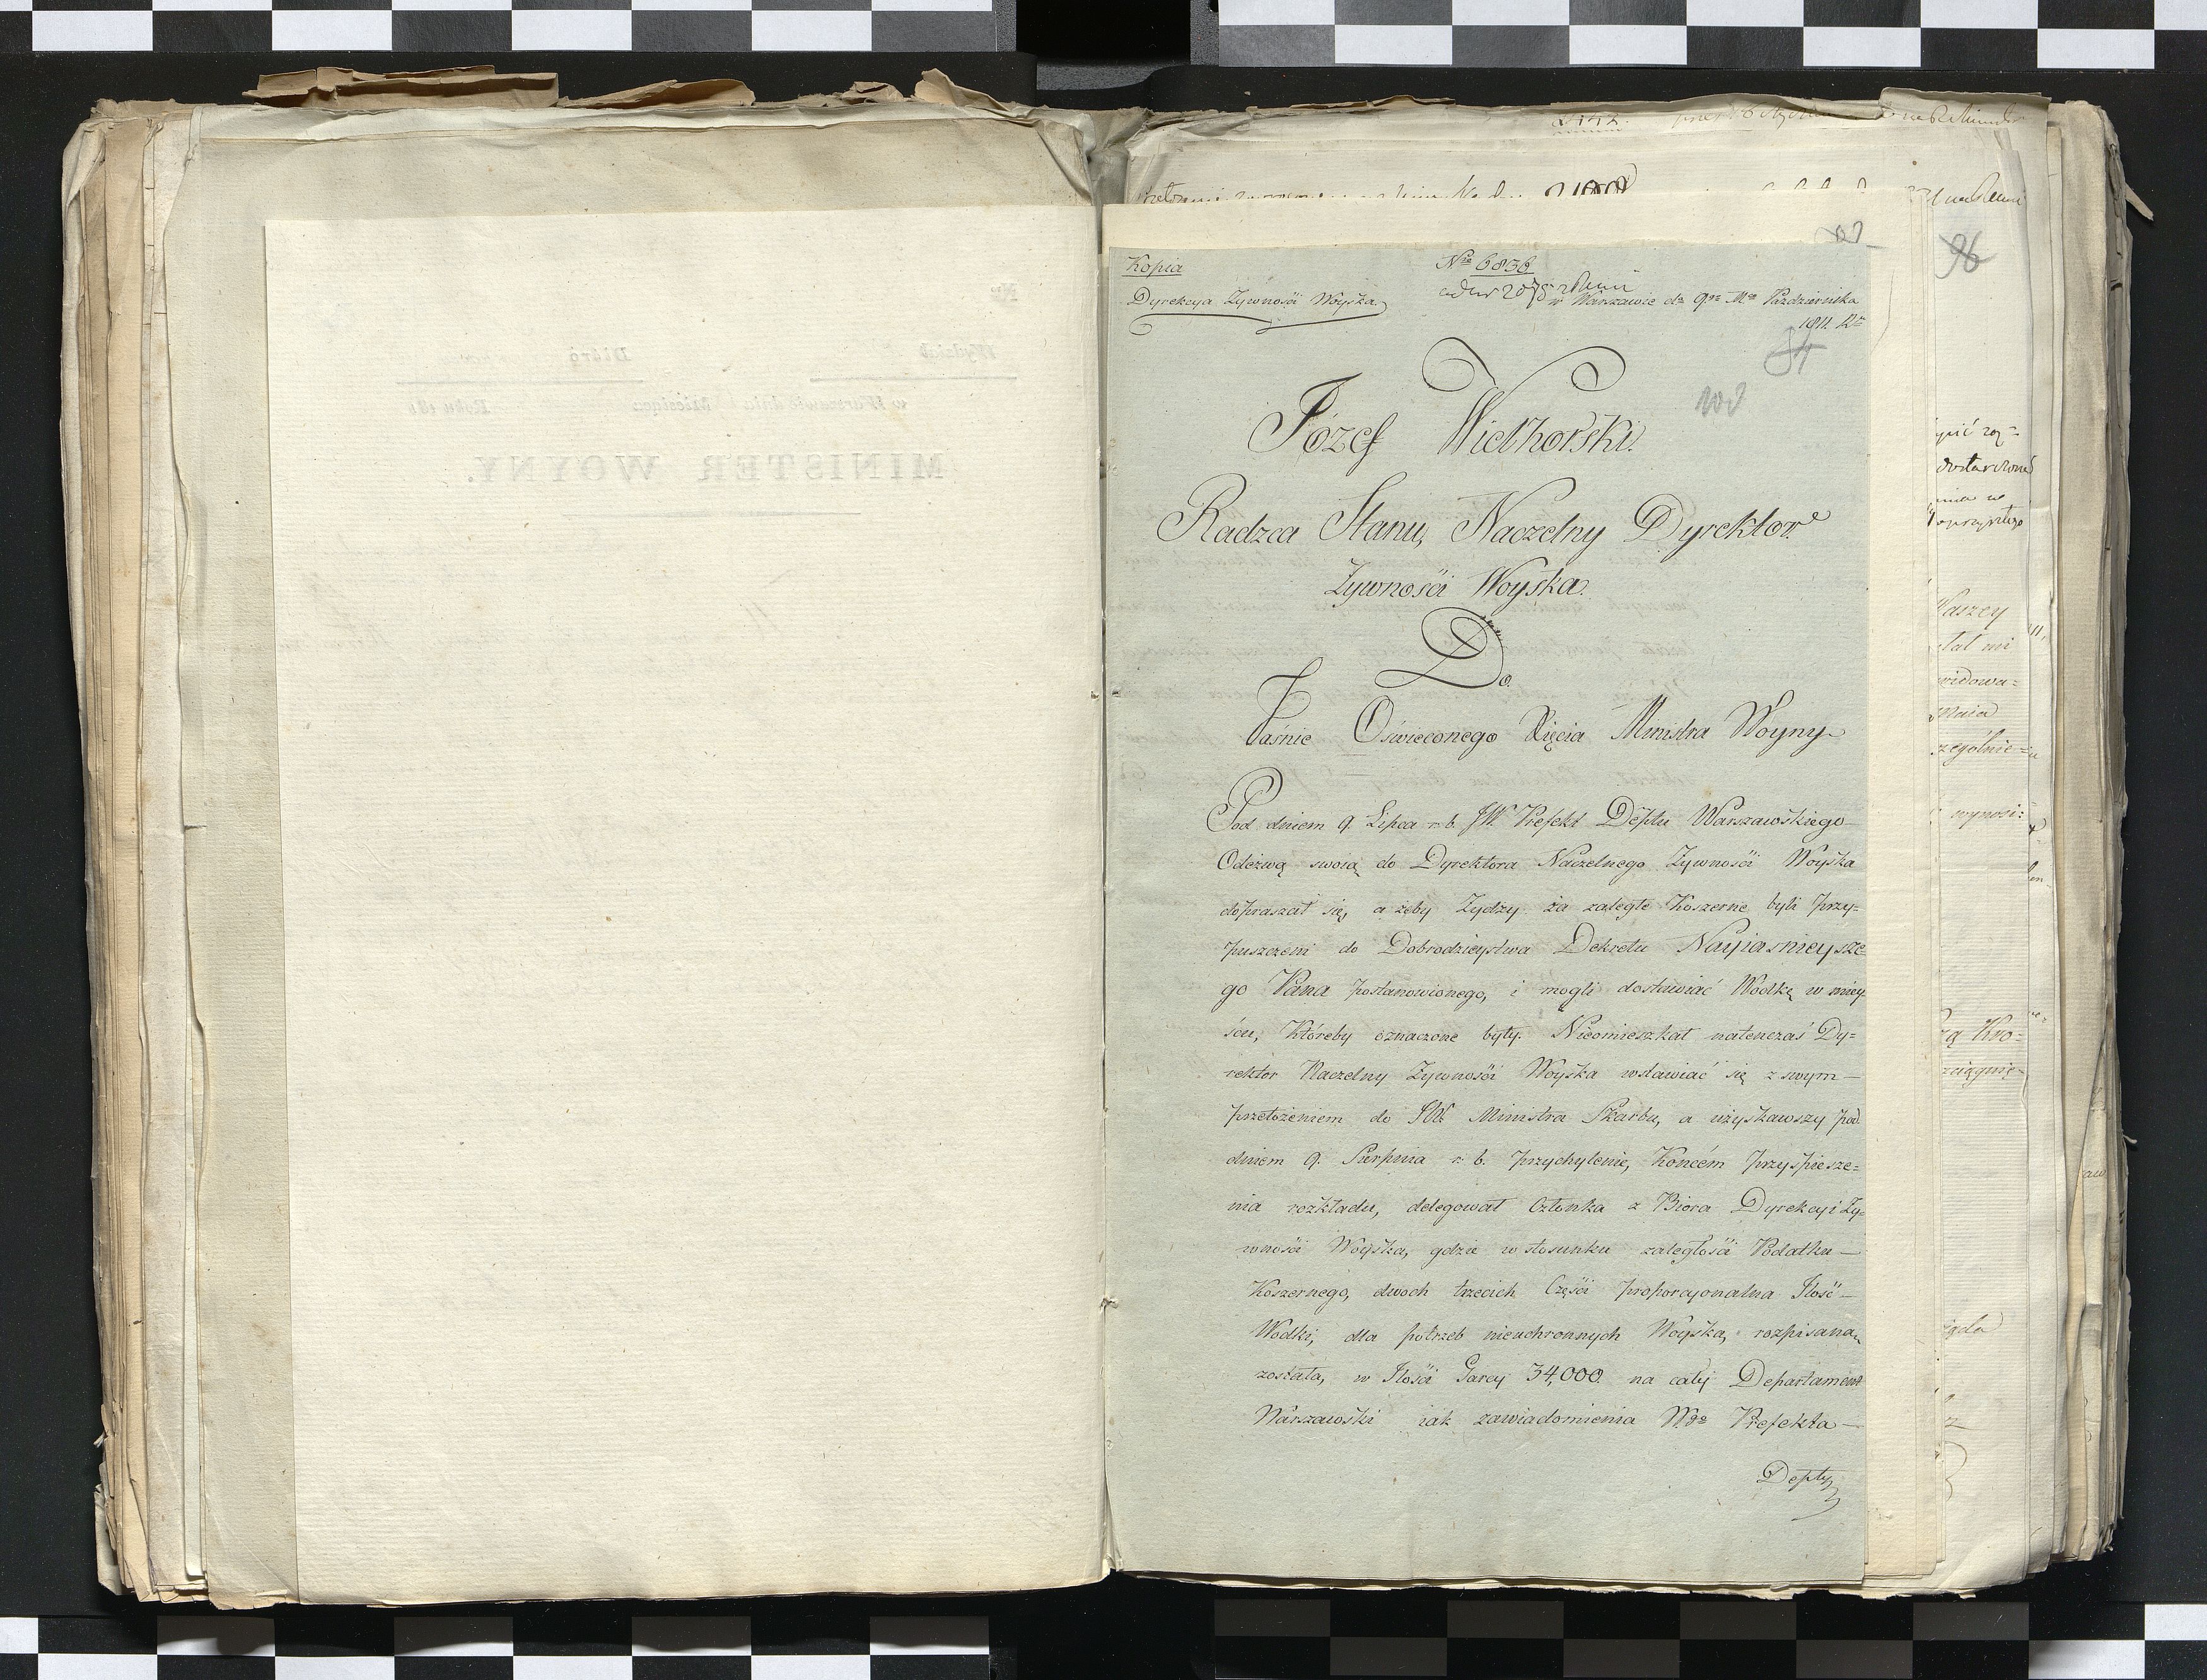 Kopia
Nro 6836
Dyrekcya Żywnośći Woyska
w Warszawie da 9go Mca Pazdziernika
1811 Rku
84
Józef Wielhorski.
Radzca Stanu, Naczelny Dyrektor
Żywnośći Woyska.
Do
Jaśnie Oświeconego Xięcia Ministra Woyny
Pod dniem 9. Lipca r. b. JW. Prefekt Deptu Warszawskiego
Odezwą swoią do Dyrektora Naczelnego Żywnośći Woyska
dopraszał się, a żeby Żydzy za zaległe Koszerne byli przy=
puszczeni do Dobrodzieystwa Dekretu Nayiasnieysze=
go Pana postanowionego, i mogli dostawiać Wodkę w miey
scu, Któreby oznaczone były. Nieomieszkał natenczas Dy=
rektor Naczelny Żywnośći Woyska wstawiać się z swym
przełożeniem do JW. Ministra Skarbu, a uzyskawszy pod
dniem 9. Sierpnia r. b. przychylenie, Koncem przyspiesze=
nia rozkładu, delegował Członka z Biora Dyrekcyi Ży=
wnośći Woyska, gdzie w stosunku zaległośći Podatku
Koszernego, dwoch trzecich Częśći proporcyonalna Ilość
Wodki, dla potrzeb nieuchronnych Woyska, rozpisana
została, w Ilośći Garcy 34,000. na cały Departament
Warszawski iak zawiadomienia Wgo Prefekta
Deptu
MINISTER WOYNY.
96